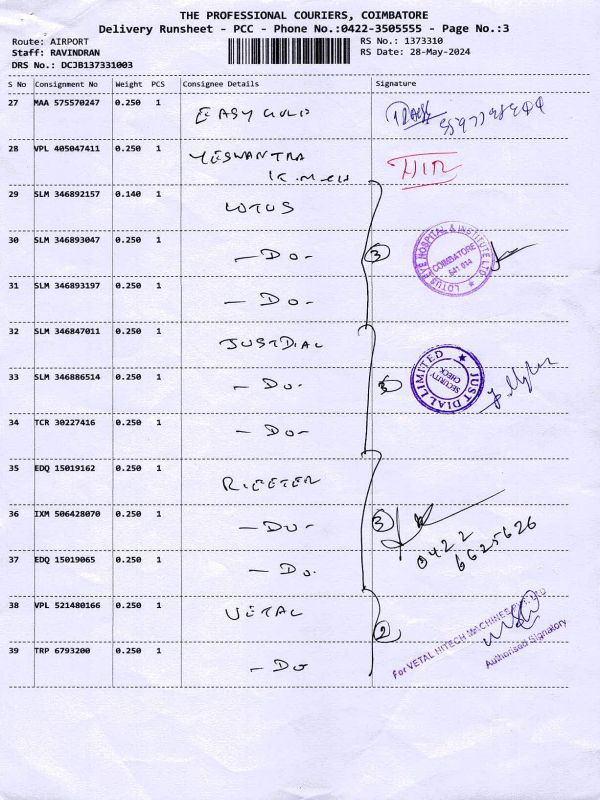 THE PROFESSIONAL COURIERS, COIMBATORE
Delivery Runsheet - PCC - Phone No.:0422-3505555 - Page No.:3
Route: AIRPORT RS No.: 1373310
Staff: RAVINDRAN RS Date: 28-May-2024
DRS No.: DCJB137331003
S No Consignment No Weight PCS Consignee Details Signature
27 MAA 575570247 0.250 1 EASY GOLD
28 VPL 405047411 0.250 1 YESWANTRA
29 SLM 346892157 0.140 1 LOTUS
30 SLM 346893047 0.250 1 -DO- 3
LOTUS EYE HOSPITAL & INSTITUTE LTD.
COIMBATORE
641 014
31 SLM 346893197 0.250 1 -DO-
32 SLM 346847011 0.250 1 JUSTDIAL
33 SLM 346886514 0.250 1 -DO-
JUST DIAL LIMITED
SECURITY
CHECK
34 TCR 30227416 0.250 1 -DO-
35 EDQ 15019162 0.250 1
36 IXM 506428070 0.250 1 -DO- 3
0422
6625626
37 EDQ 15019065 0.250 1 -DO.
38 VPL 521480166 0.250 1 VETAL 2
For VETAL HITECH MACHINES PVT. LTD
Authorised Signatory
39 TRP 6793200 0.250 1 -DO